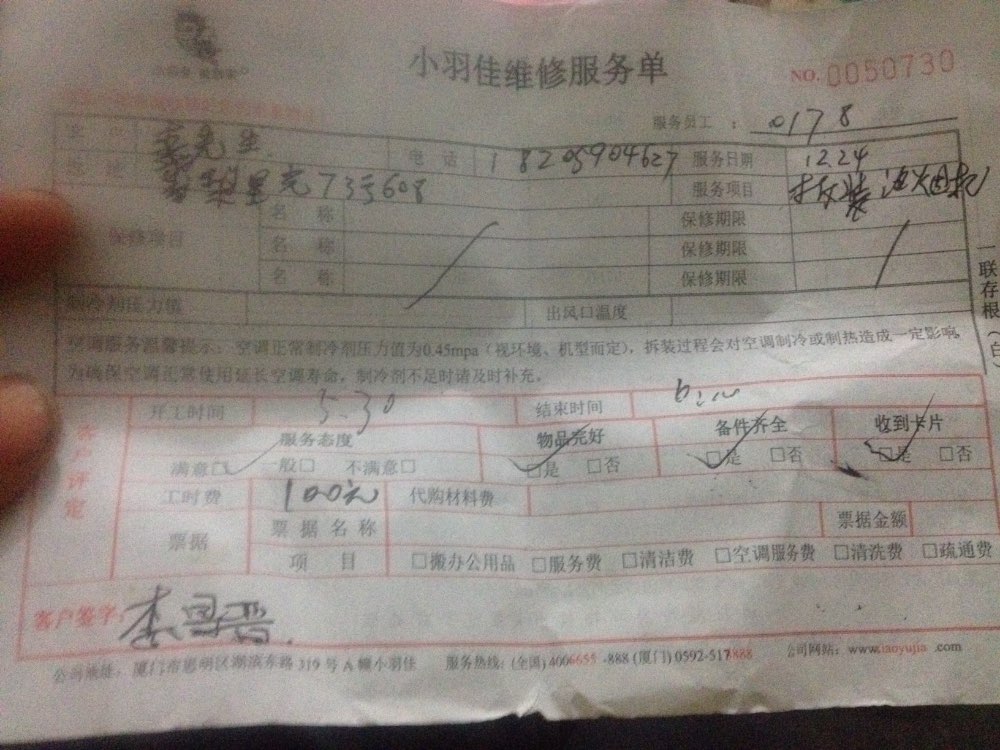 小羽佳维修服务单
NO.0050730
服务员工 : 0178
客户 先生 电话 18205904627 服务日期 12.24
地址 73号608 服务项目
名称 保修期限
保修项目 名称 保修期限
名称 保修期限
制冷剂压力值 出风口温度
空调服务温馨提示:空调正常制冷剂压力值为0.45mpa(视环境、机型而定),拆装过程会对空调制冷或制热造成一定影响。
为确保空调正常使用延长空调寿命,制冷剂不足时请及时补充。
一联存根(白)
客户评定
开工时间 5.30 结束时间
服务态度 物品完好 备件齐全 收到卡片
满意□ 一般□ 不满意□ □是 □否 □是 □否 □是 □否
工时费 100元 代购材料费
票据 票据名称 票据金额
项目 □搬办公用品 □服务费 □清洁费 □空调服务费 □清洗费 □疏通费
客户签字:李
公司地址:厦门市思明区湖滨东路319号A幢小羽佳 服务热线:(全国)4006655-888(厦门)0592-517888 公司网站:www.iaoyujia.com